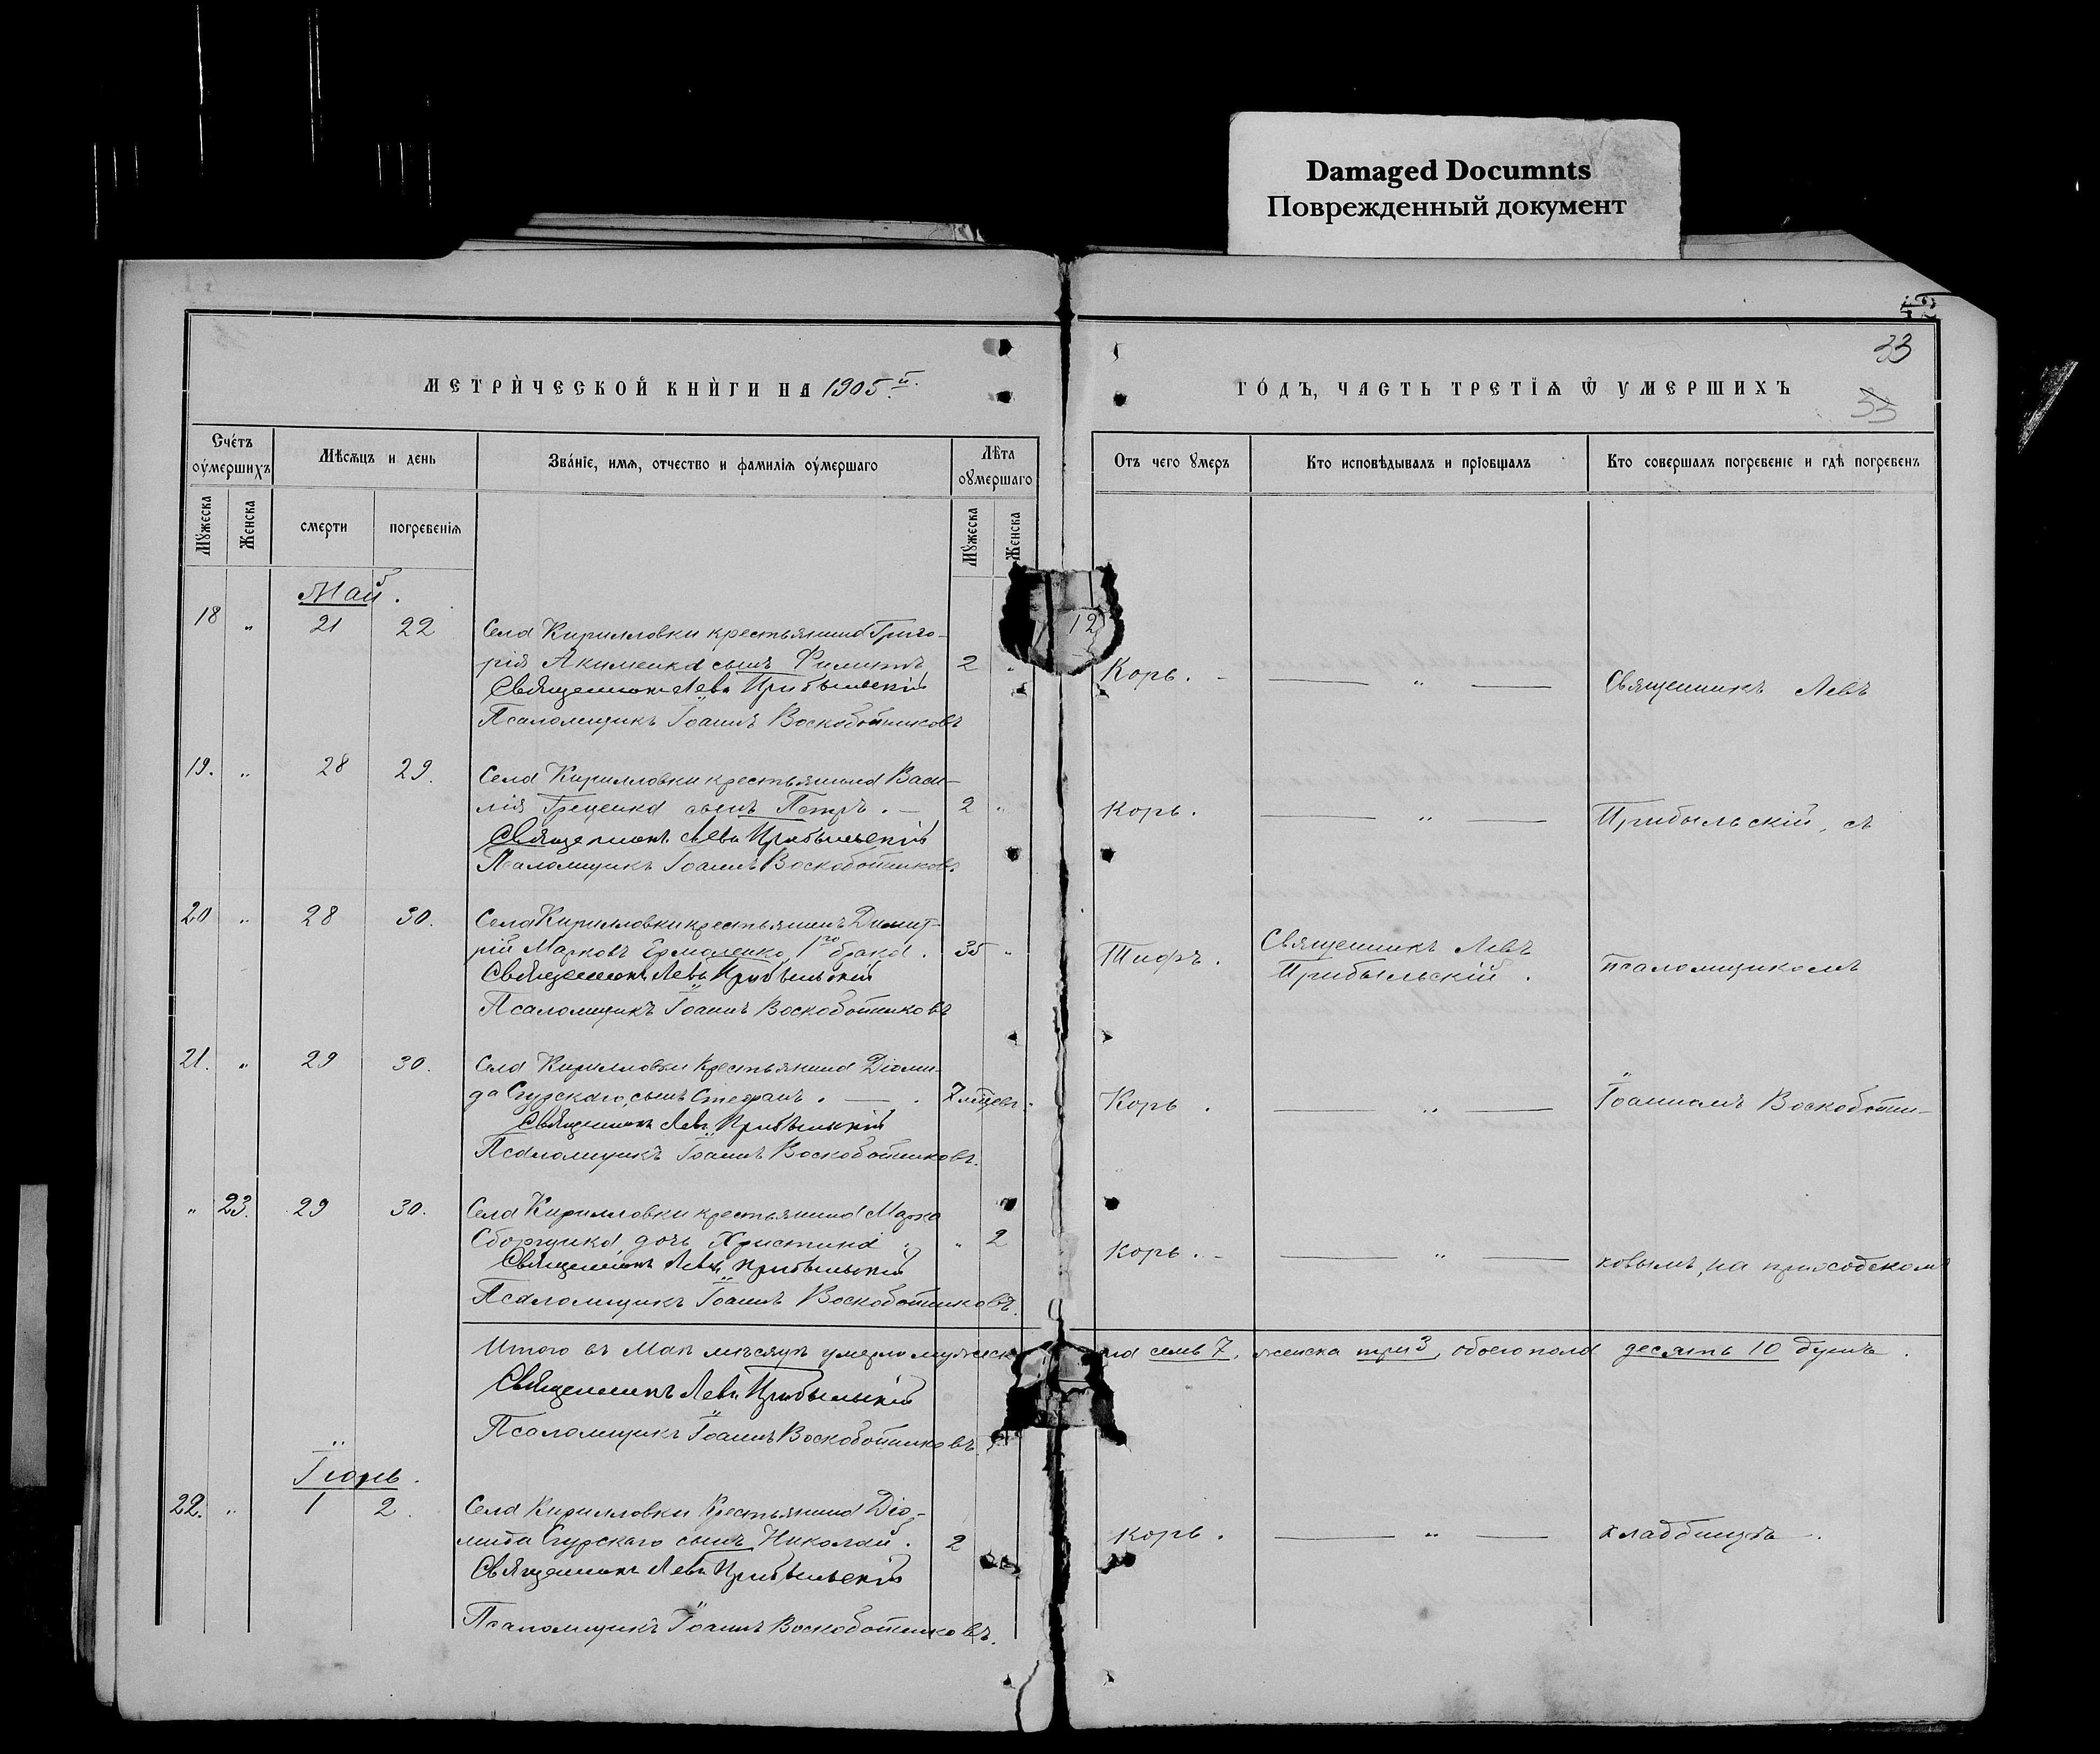 Damaged Documnts
Поврежденный документ
33
33
МЕТРИЧЕСКОЙ КНИГИ НА 1905 й.
ГОДЪ, ЧАСТЬ ТРЕТІѦ Ѿ УМЕРШИХЪ
Счетъ оумершихъ
Мѣсѧцъ и день
Званіе, имѧ, отчество и фамиліѧ оумершаго
Лѣта оумершаго
Отъ чего умеръ
Кто исповѣдывалъ и пріобщалъ
Кто совершалъ погребеніе и гдѣ погребенъ
Мужеска
Женска
смерти
погребеніѧ
Мужеска
Женска
Май.
18 " 21 22 Села Кирилловки крестьянина Григо-
рія Акименка сынъ Филиппъ 2 " Корь. — " — Священникъ Левъ
Священникъ Левъ Прибыльскій
Псаломщикъ Іоаннъ Воскобойниковъ
12
19. " 28 29. Села Кирилловки крестьянина Васи-
лія Грещенка сынъ Петръ. — 2 " Корь. — " — Прибыльскій, съ
Священникъ Левъ Прибыльскій
Псаломщикъ Іоаннъ Воскобойниковъ.
20 " 28 30. Села Кирилловки крестьянинъ Димит-
рій Марковъ Ермоленко 1го брака. 35 " Тифъ. Священникъ Левъ Прибыльскій. псаломщикомъ
Священникъ Левъ Прибыльскій
Псаломщикъ Іоаннъ Воскобойниковъ
21. " 29 30. Села Кирилловки крестьянина Діоми-
да Сурскаго, сынъ Стефанъ. — . 7 мѣсяц. Корь. — " — Іоанномъ Воскобойни-
Священникъ Левъ Прибыльскій
Псаломщикъ Іоаннъ Воскобойниковъ.
" 23. 29 30. Села Кирилловки крестьянина Марка
Сборщика дочь Христина " 2 Корь. — " — ковымъ, на приходскомъ
Священникъ Левъ Прибыльскій
Псаломщикъ Іоаннъ Воскобойниковъ.
Итого въ Маѣ мѣсяцѣ умерло мужеска пола семь 7, женска три 3, обоего пола десять 10 душъ.
Священникъ Левъ Прибыльскій
Псаломщикъ Іоаннъ Воскобойниковъ.
Іюнь.
22. " 1 2. Села Кирилловки крестьянина Діо-
мида Сурскаго сынъ Николай. 2 Корь. — " — кладбищѣ.
Священникъ Левъ Прибыльскій
Псаломщикъ Іоаннъ Воскобойниковъ.